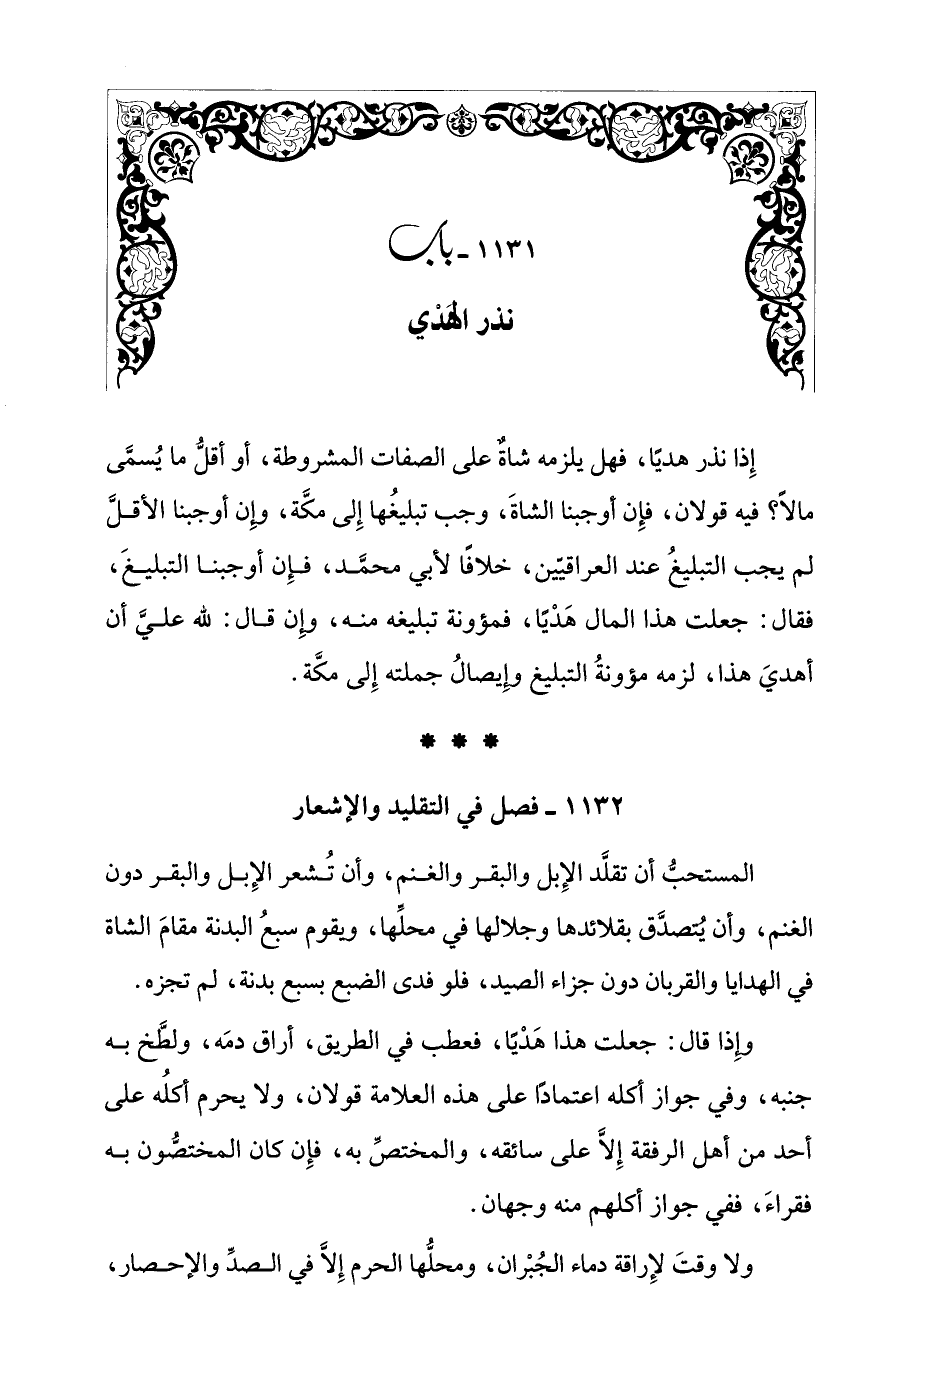 ١١٣١ - باب
نذر الهَدْي
إِذا نذر هديًا، فهل يلزمه شاةٌ على الصفات المشروطة، أو أقلُّ ما يُسمَّى
مالاً؟ فيه قولان، فإِن أوجبنا الشاةَ، وجب تبليغُها إِلى مكَّة، وإِن أوجبنا الأقلَّ
لم يجب التبليغُ عند العراقيّين، خلافًا لأبي محمَّد، فإِن أوجبنا التبليغَ،
فقال: جعلت هذا المال هَدْيًا، فمؤونة تبليغه منه، وإِن قال: لله عليَّ أن
أهديَ هذا، لزمه مؤونةُ التبليغ وإِيصالُ جملته إِلى مكَّة.
* * *
١١٣٢ - فصل في التقليد والإشعار
المستحبُّ أن تقلَّد الإِبل والبقر والغنم، وأن تُشعر الإِبل والبقر دون
الغنم، وأن يُتصدَّق بقلائدها وجلالها في محلِّها، ويقوم سبعُ البدنة مقامَ الشاة
في الهدايا والقربان دون جزاء الصيد، فلو فدى الضبع بسبع بدنة، لم تجزه.
وإِذا قال: جعلت هذا هَدْيًا، فعطب في الطريق، أراق دمَه، ولطَّخ به
جنبه، وفي جواز أكله اعتمادًا على هذه العلامة قولان، ولا يحرم أكلُه على
أحد من أهل الرفقة إِلاَّ على سائقه، والمختصِّ به، فإِن كان المختصُّون به
فقراءَ، ففي جواز أكلهم منه وجهان.
ولا وقتَ لإِراقة دماء الجُبْران، ومحلُّها الحرم إِلاَّ في الصدِّ والإحصار،